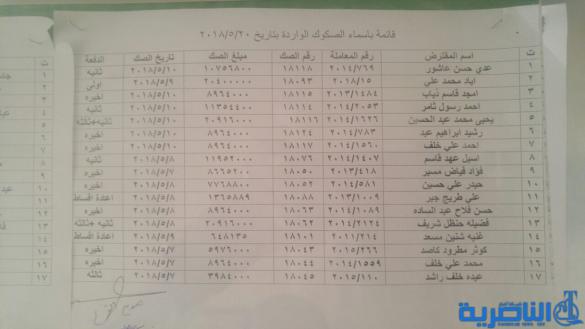 قائمة باسماء الصكوك الواردة بتاريخ ٢٠١٨/٥/٢٠
ت اسم المقترض رقم المعاملة رقم الصك مبلغ الصك تاريخ الصك الدفعة
١ عدي حسن عاشور ٢٠١٤/٧٦٩ ١٨١١٨ ١٠٧٥٦٨٠٠ ٢٠١٨/٥/١٠ ثانيه
٢ اياد محمد علي ٢٠١٨/١٥ ١٨٠٩٣ ٢٠٤٠٠٠٠٠ ٢٠١٨/٥/٩ اولى
٣ امجد قاسم ذياب ٢٠١٣/١٤٨٤ ١٨١١٥ ٨٩٦٤٠٠٠ ٢٠١٨/٥/١٠ اخيره
٤ احمد رسول ثامر ٢٠١٤/٢٠٥٣ ١٨١١٤ ١١٣٥٤٤٠٠ ٢٠١٨/٥/١٠ ثانيه
٥ يحيى محمد عبد الحسين ٢٠١٤/١٦٢٦ ١٨١١٦ ٢٠٩١٦٠٠٠ ٢٠١٨/٥/١٠ ثانيه+ثالثه
٦ رشيد ابراهيم عبد ٢٠١٤/٧٨٣ ١٨١٢٤ ٨٩٦٤٠٠٠ ٢٠١٨/٥/١٠ اخيره
٧ احمد علي خلف ٢٠١٤/١٥٦٠ ١٨١١٧ ٨٩٦٤٠٠٠ ٢٠١٨/٥/١٠ اخيره
٨ اسيل عهد قاسم ٢٠١٤/١٤٠٧ ١٨٠٧٦ ١١٩٥٢٠٠٠ ٢٠١٨/٥/٨ ثانيه
٩ فؤاد فياض مسير ٢٠١٣/٤١٨ ١٨٠٥٠ ٨٦٦٥٢٠٠ ٢٠١٨/٥/٧ اخيره
١٠ حيدر علي حسين ٢٠١٤/٥٨١ ١٨٠٥٢ ٧٧٦٨٨٠٠ ٢٠١٨/٥/٧ اخيره
١١ علي طريج جبر ٢٠١٣/١٠٠٩ ١٨٠٨٨ ١٣٦٥٨٨٩ ٢٠١٨/٥/٨ اعادة اقساط
١٢ حسن فلاح عبد الساده ٢٠١٤/١٠٨٩ ١٨٠٦٣ ٨٩٦٤٠٠٠ ٢٠١٨/٥/٨ اخيره
١٣ فضيله حنظل شريف ٢٠١٤/٢١٢٤ ١٨٠٦٢ ٢٠٩١٦٠٠٠ ٢٠١٨/٥/٨ ثانيه+ثالثه
١٤ غنيه شنين مسعد ٢٠١١/٢١١ ١٨٠٦٠ ٦٤٨١٣٥ ٢٠١٨/٥/٨ اعادة اقساط
١٥ كوثر مطرود كاصد ٢٠١٥/٢٦٦ ١٨٠٤٣ ٥٩٧٦٠٠٠ ٢٠١٨/٥/٧ اخيره
١٦ محمد علي خلف ٢٠١٤/١٥٥٩ ١٨٠٤٤ ٨٩٦٤٠٠٠ ٢٠١٨/٥/٧ اخيره
١٧ عبده خلف راشد ٢٠١٥/١١٠ ١٨٠٤٥ ٣٩٨٤٠٠٠ ٢٠١٨/٥/٧ ثالثه
الناصرية